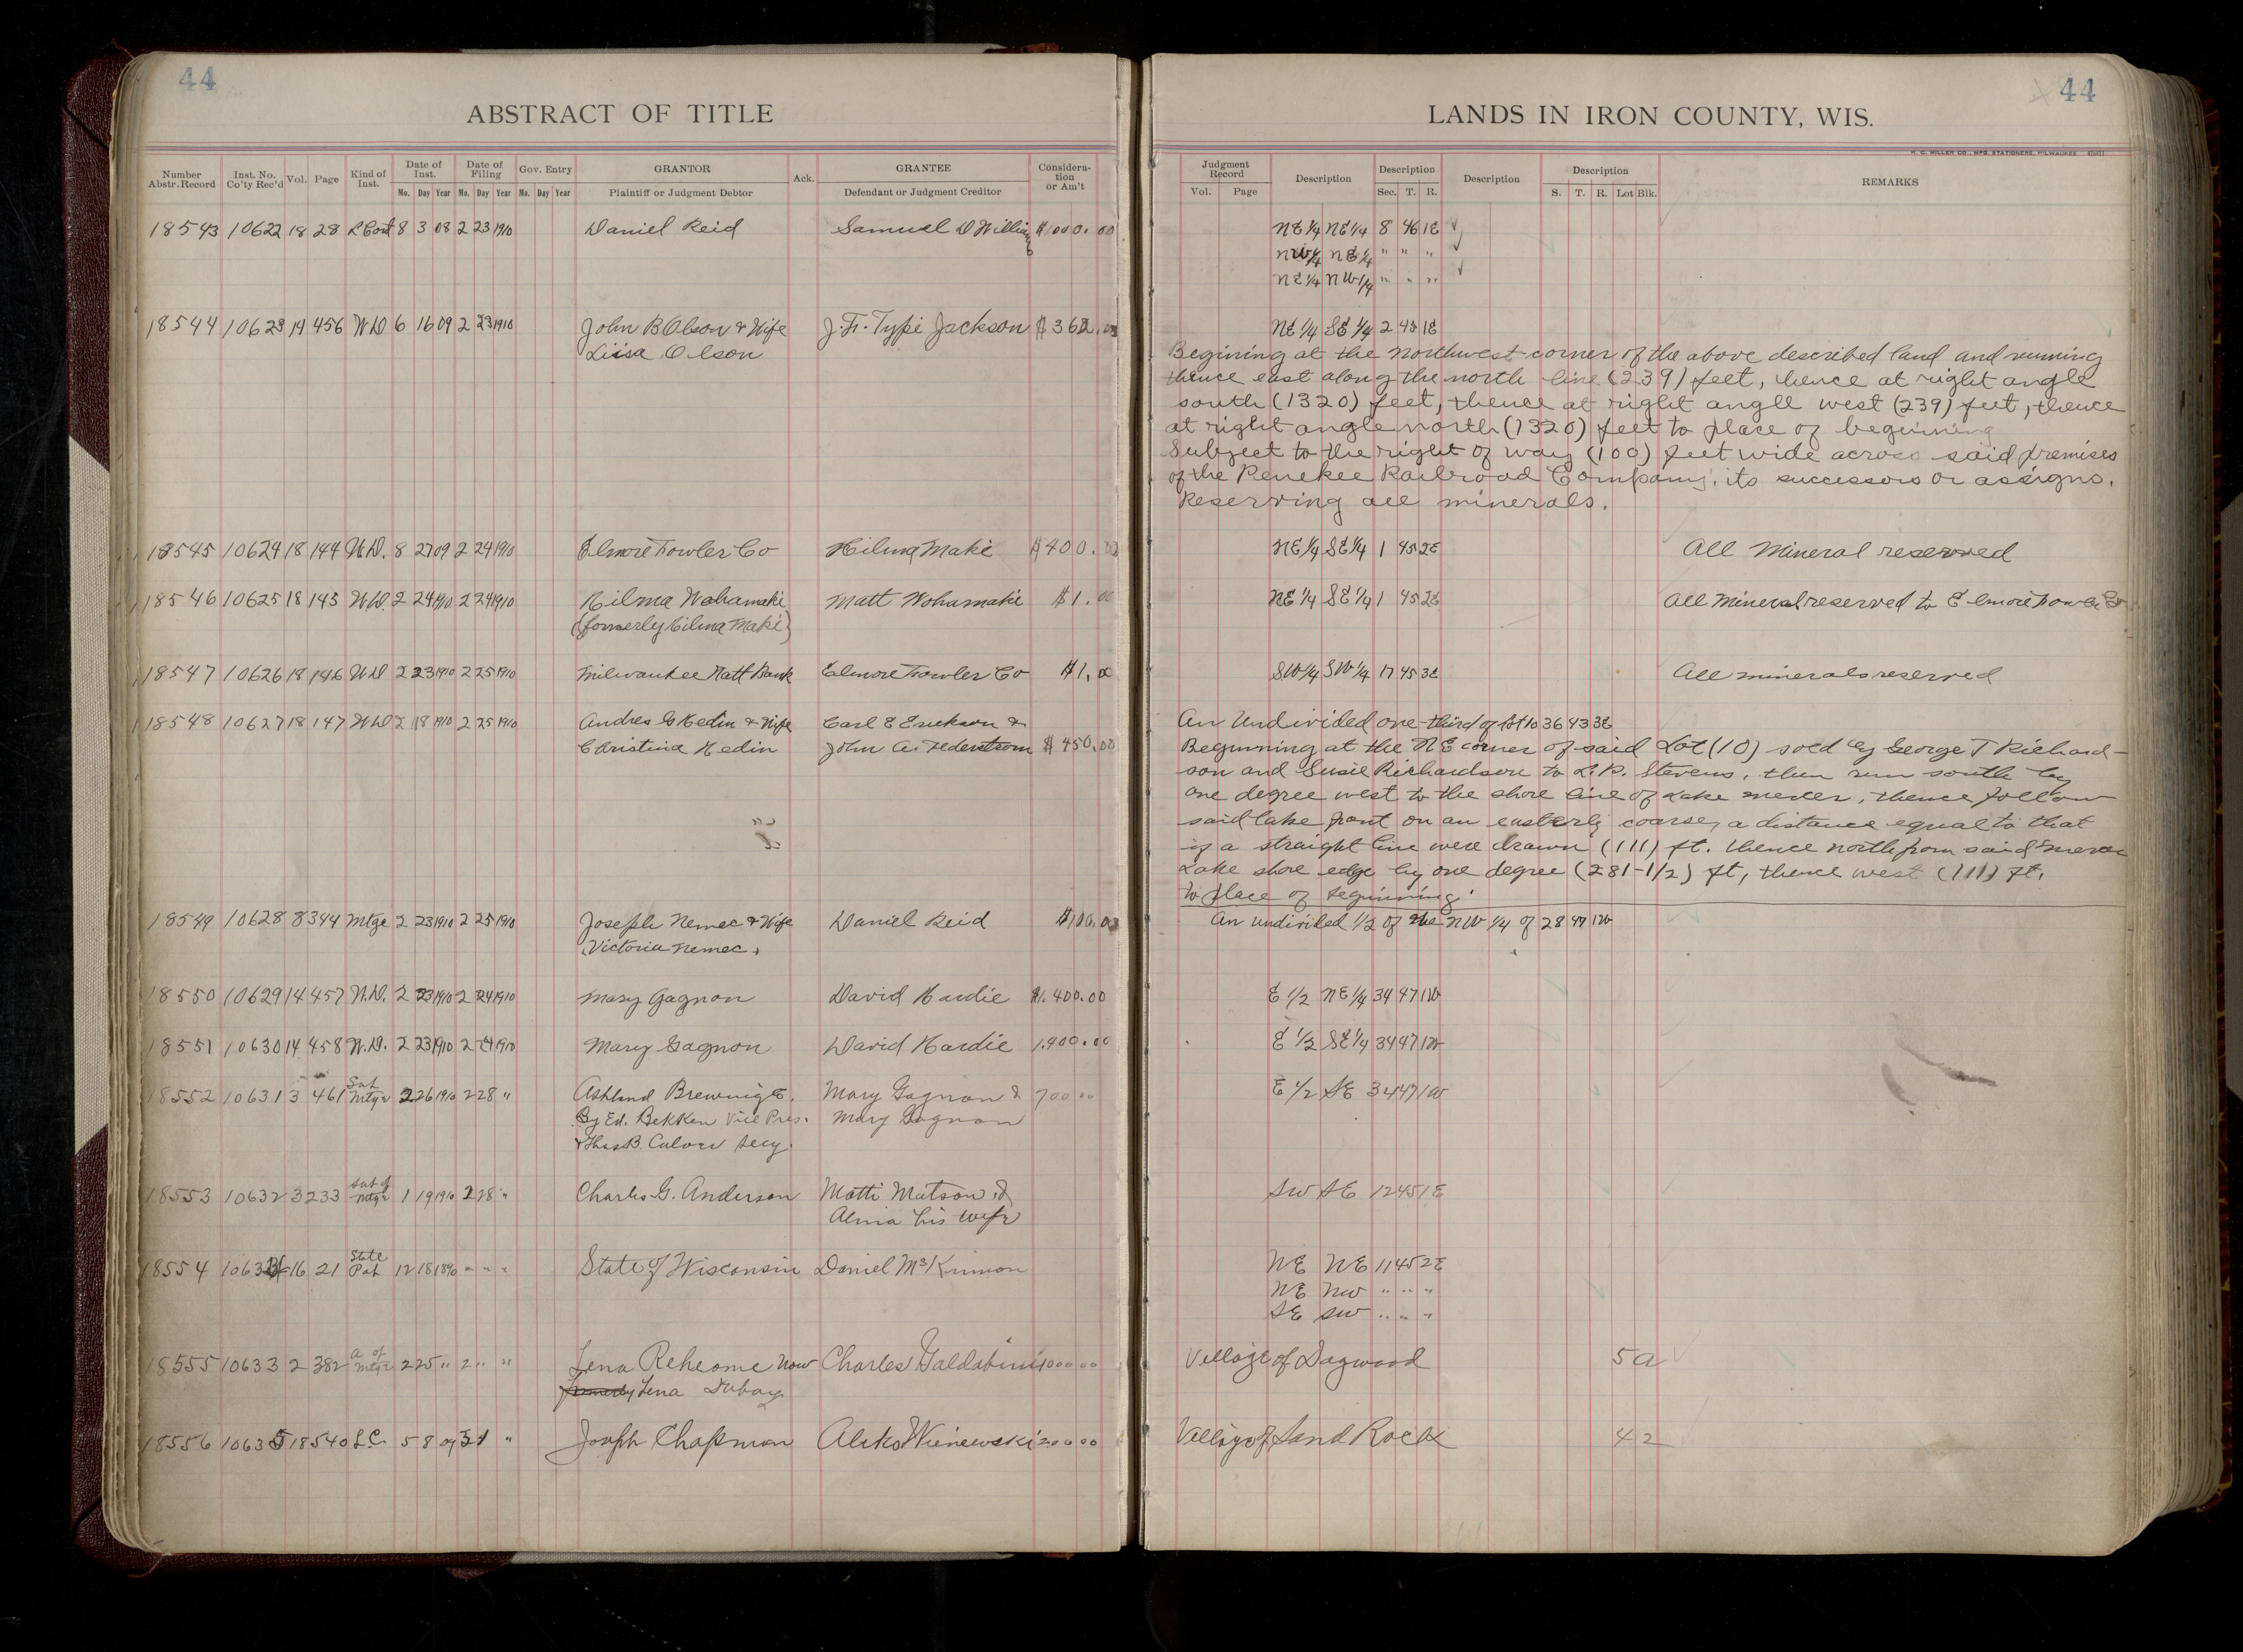 44
ABSTRACT OF TITLE
Number Abstr. Record Inst. No. Co'ty Rec'd Vol. Page Kind of Inst. Date of Inst. Mo. Day Year Date of Filing Mo. Day Year Gov. Entry Mo. Day Year GRANTOR Plaintiff or Judgment Debtor Ack. GRANTEE Defendant or Judgment Creditor Consideration or Am't
18543 10622 18 28 L Cont 8 3 08 2 23 1910 Daniel Reid Samuel D Williams $1000.00
18544 10623 14 456 WD 6 16 09 2 23 1910 John B Olson & Wife J. F. Typi Jackson $362.00
Liisa Olson
18545 10624 18 144 W.D. 8 27 09 2 24 1910 Elmore Fowler Co Hilma Maki $400.00
18546 10625 18 145 WD. 2 24 1910 2 24 1910 Hilma Wohamaki Matt Wohamaki $1.00
(formerly Hilma Maki)
18547 10626 18 146 WD 2 23 1910 2 25 1910 Milwaukee Natl Bank Elmore Fowler Co $1.00
18548 10627 18 147 WD 2 18 1910 2 25 1910 Andres G Hedin & Wife Carl E Erickson &
Christina Hedin John A. Federstrom $450.00
18549 10628 8 344 Mtge 2 23 1910 2 25 1910 Joseph Nemec & Wife Daniel Reid $100.00
Victoria Nemec
18550 10629 14 457 W.D. 2 23 1910 2 24 1910 Mary Gagnon David Hardie $1.400.00
18551 10630 14 458 W.D. 2 23 1910 2 24 1910 Mary Gagnon David Hardie 1.900.00
18552 10631 3 461 Sat Mtge 2 26 1910 2 28 " Ashland Brewing Co. Mary Gagnon & 700.00
By Ed. Bekken Vice Pres. Mary Gagnon
& Thos B. Culver Secy.
18553 10632 3 233 Sat of Mtge 1 19 1910 2 28 " Charles G. Anderson Matti Matson &
Alma his wife
18554 10634 16 21 State Pat 12 18 1890 " " " State of Wisconsin Daniel McKinnon
18555 10633 2 382 A of Mtge 2 25 " 2 " " Lena Reheome now Charles Galdabini 1000.00
formerly Lena Dubay
18556 10635 18 540 L C 5 8 09 3 1 " Joseph Chapman 200.00
44
LANDS IN IRON COUNTY, WIS.
H. C. MILLER CO., MFG. STATIONERS, MILWAUKEE
Judgment Record Vol. Page Description Description Sec. T. R. Description Description S. T. R. Lot Blk. REMARKS
NE 1/4 NE 1/4 8 46 1E
NW 1/4 NE 1/4 " " "
NE 1/4 NW 1/4 " " "
NE 1/4 SE 1/4 2 45 1E
Begining at the Northwest corner of the above described land and running
thence east along the north line (239) feet, thence at right angle
south (1320) feet, thence at right angle west (239) feet, thence
at right angle north (1320) feet to place of beginning
Subject to the right of way (100) feet wide across said premises
of the Penekee Railroad Company, its successors or assigns.
Reserving all minerals.
NE 1/4 SE 1/4 1 45 2E All Mineral reserved
NE 1/4 SE 1/4 1 45 2E All Mineral reserved to Elmore Fowler Co
SW 1/4 SW 1/4 17 45 3E All minerals reserved
An Undivided one-third of Lot 10 36 43 3E
Beginning at the NE corner of said Lot (10) sold by George T Richard-
son and Susie Richardson to L. P. Stevens, then run south by
one degree west to the shore line of Lake Mercer, thence follow
said lake front on an easterly coarse, a distance equal to that
if a straight line were drawn (111) ft. thence north from said Mercer
Lake shore edge by one degree (281-1/2) ft, thence west (111) ft.
to place of beginning.
An undivided 1/2 of the NW 1/4 of 28 47 1W
E 1/2 NE 1/4 34 47 1W
E 1/2 SE 1/4 34 47 1W
E 1/2 SE 34 47 1W
SW SE 12 45 1E
NE NE 11 45 2E
NE NW " " "
SE SW " " "
Village of Dagwood 5 a
Village of Sand Rock 4 2